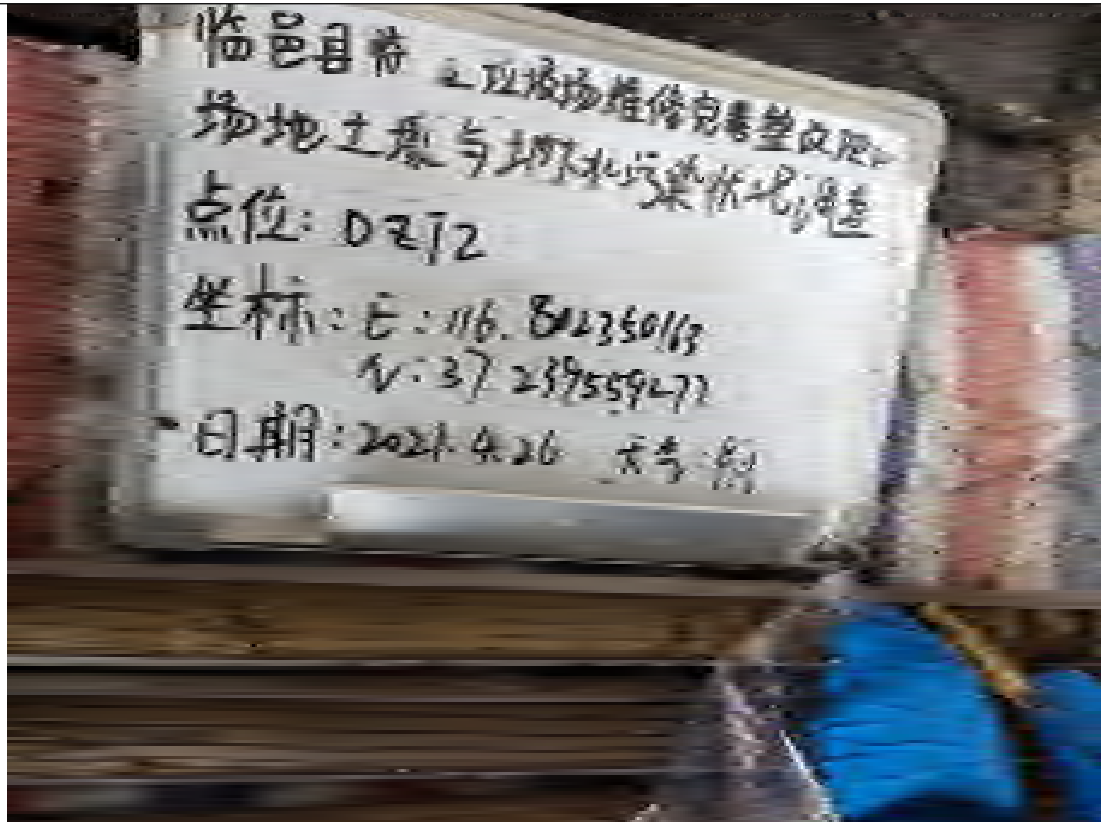 临邑县 垃圾场维修完善整改
场地土壤与地下水污染状况调查
点位: DZT2
坐标: E: 116.802350163
N: 37 239559277
日期: 2021.4.26 天气: 阴